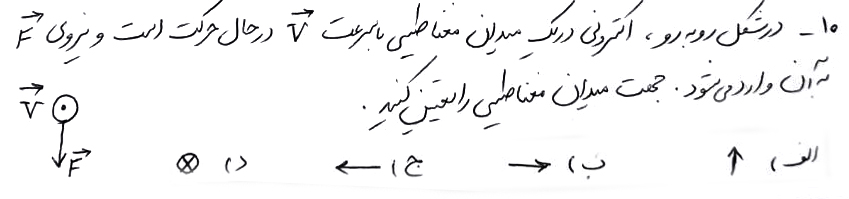 ۱۰- در شکل روبه رو، الکترونی در یک میدان مغناطیسی با سرعت V در حال حرکت است و نیروی F
به آن وارد می شود. جهت میدان مغناطیسی را تعیین کنید.
V
F
الف) ↑ ب) → ج) ← د) ⊗